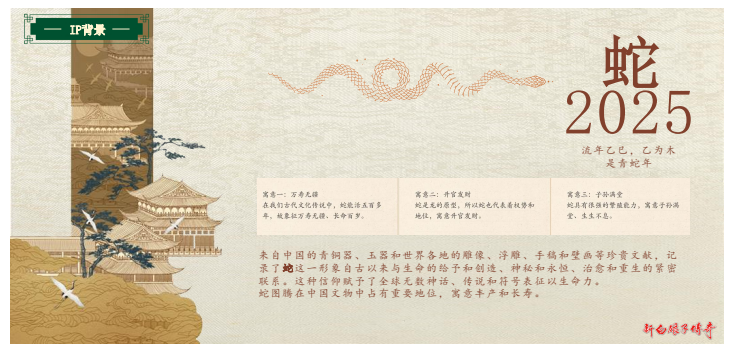 IP背景
蛇
2025
流年乙巳，乙为木
是青蛇年
寓意一：万寿无疆
在我们古代文化传说中，蛇能活五百多
年，故象征万寿无疆、长命百岁。
寓意二：升官发财
蛇是龙的原型，所以蛇也代表着权势和
地位，寓意升官发财。
寓意三：子孙满堂
蛇具有很强的繁殖能力，寓意子孙满
堂、生生不息。
来自中国的青铜器、玉器和世界各地的雕像、浮雕、手稿和壁画等珍贵文献，记
录了蛇这一形象自古以来与生命的给予和创造、神秘和永恒、治愈和重生的紧密
联系。这种信仰赋予了全球无数神话、传说和符号表征以生命力。
蛇图腾在中国文物中占有重要地位，寓意丰产和长寿。
新白娘子传奇